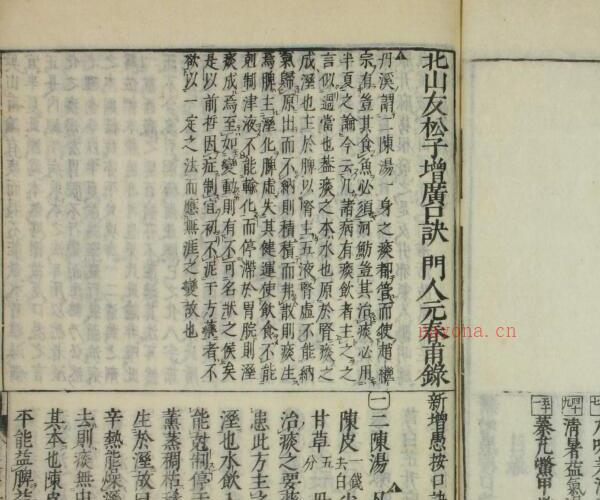 北山友松子増廣口訣 門人元春甫録
丹溪謂二陳湯一身之痰都管而使趙樵
宗有豈其食魚必須河魴豈其治痰必用
半夏之論今云凡諸病有痰飲者主之之
言似適當也蓋痰之本水也原於腎痰之
成溼也主於脾以腎主五液腎虛不能納
氣歸原出而不納則積積而不散則痰生
焉脾主溼化脾虛失其健運使飲食不能
制津液不能輸化而停滯於胃脘則溼
痰成焉至如變動則有不可名狀之候矣
是以前哲因症制宜初不泥于方藥者不
欲以一定之法而應無涯之變故也
新增愚按口訣
一二陳湯
陳皮去白
甘草五分
治痰之要
患此方主之
溼也水飲入
能制停于
薰蒸稠粘
生於溼故曰
辛熱能燥溼
去則痰無由
其本也陳皮
平能益脾益
四十九清暑益氣
五十秦艽鱉甲
nayona.cn